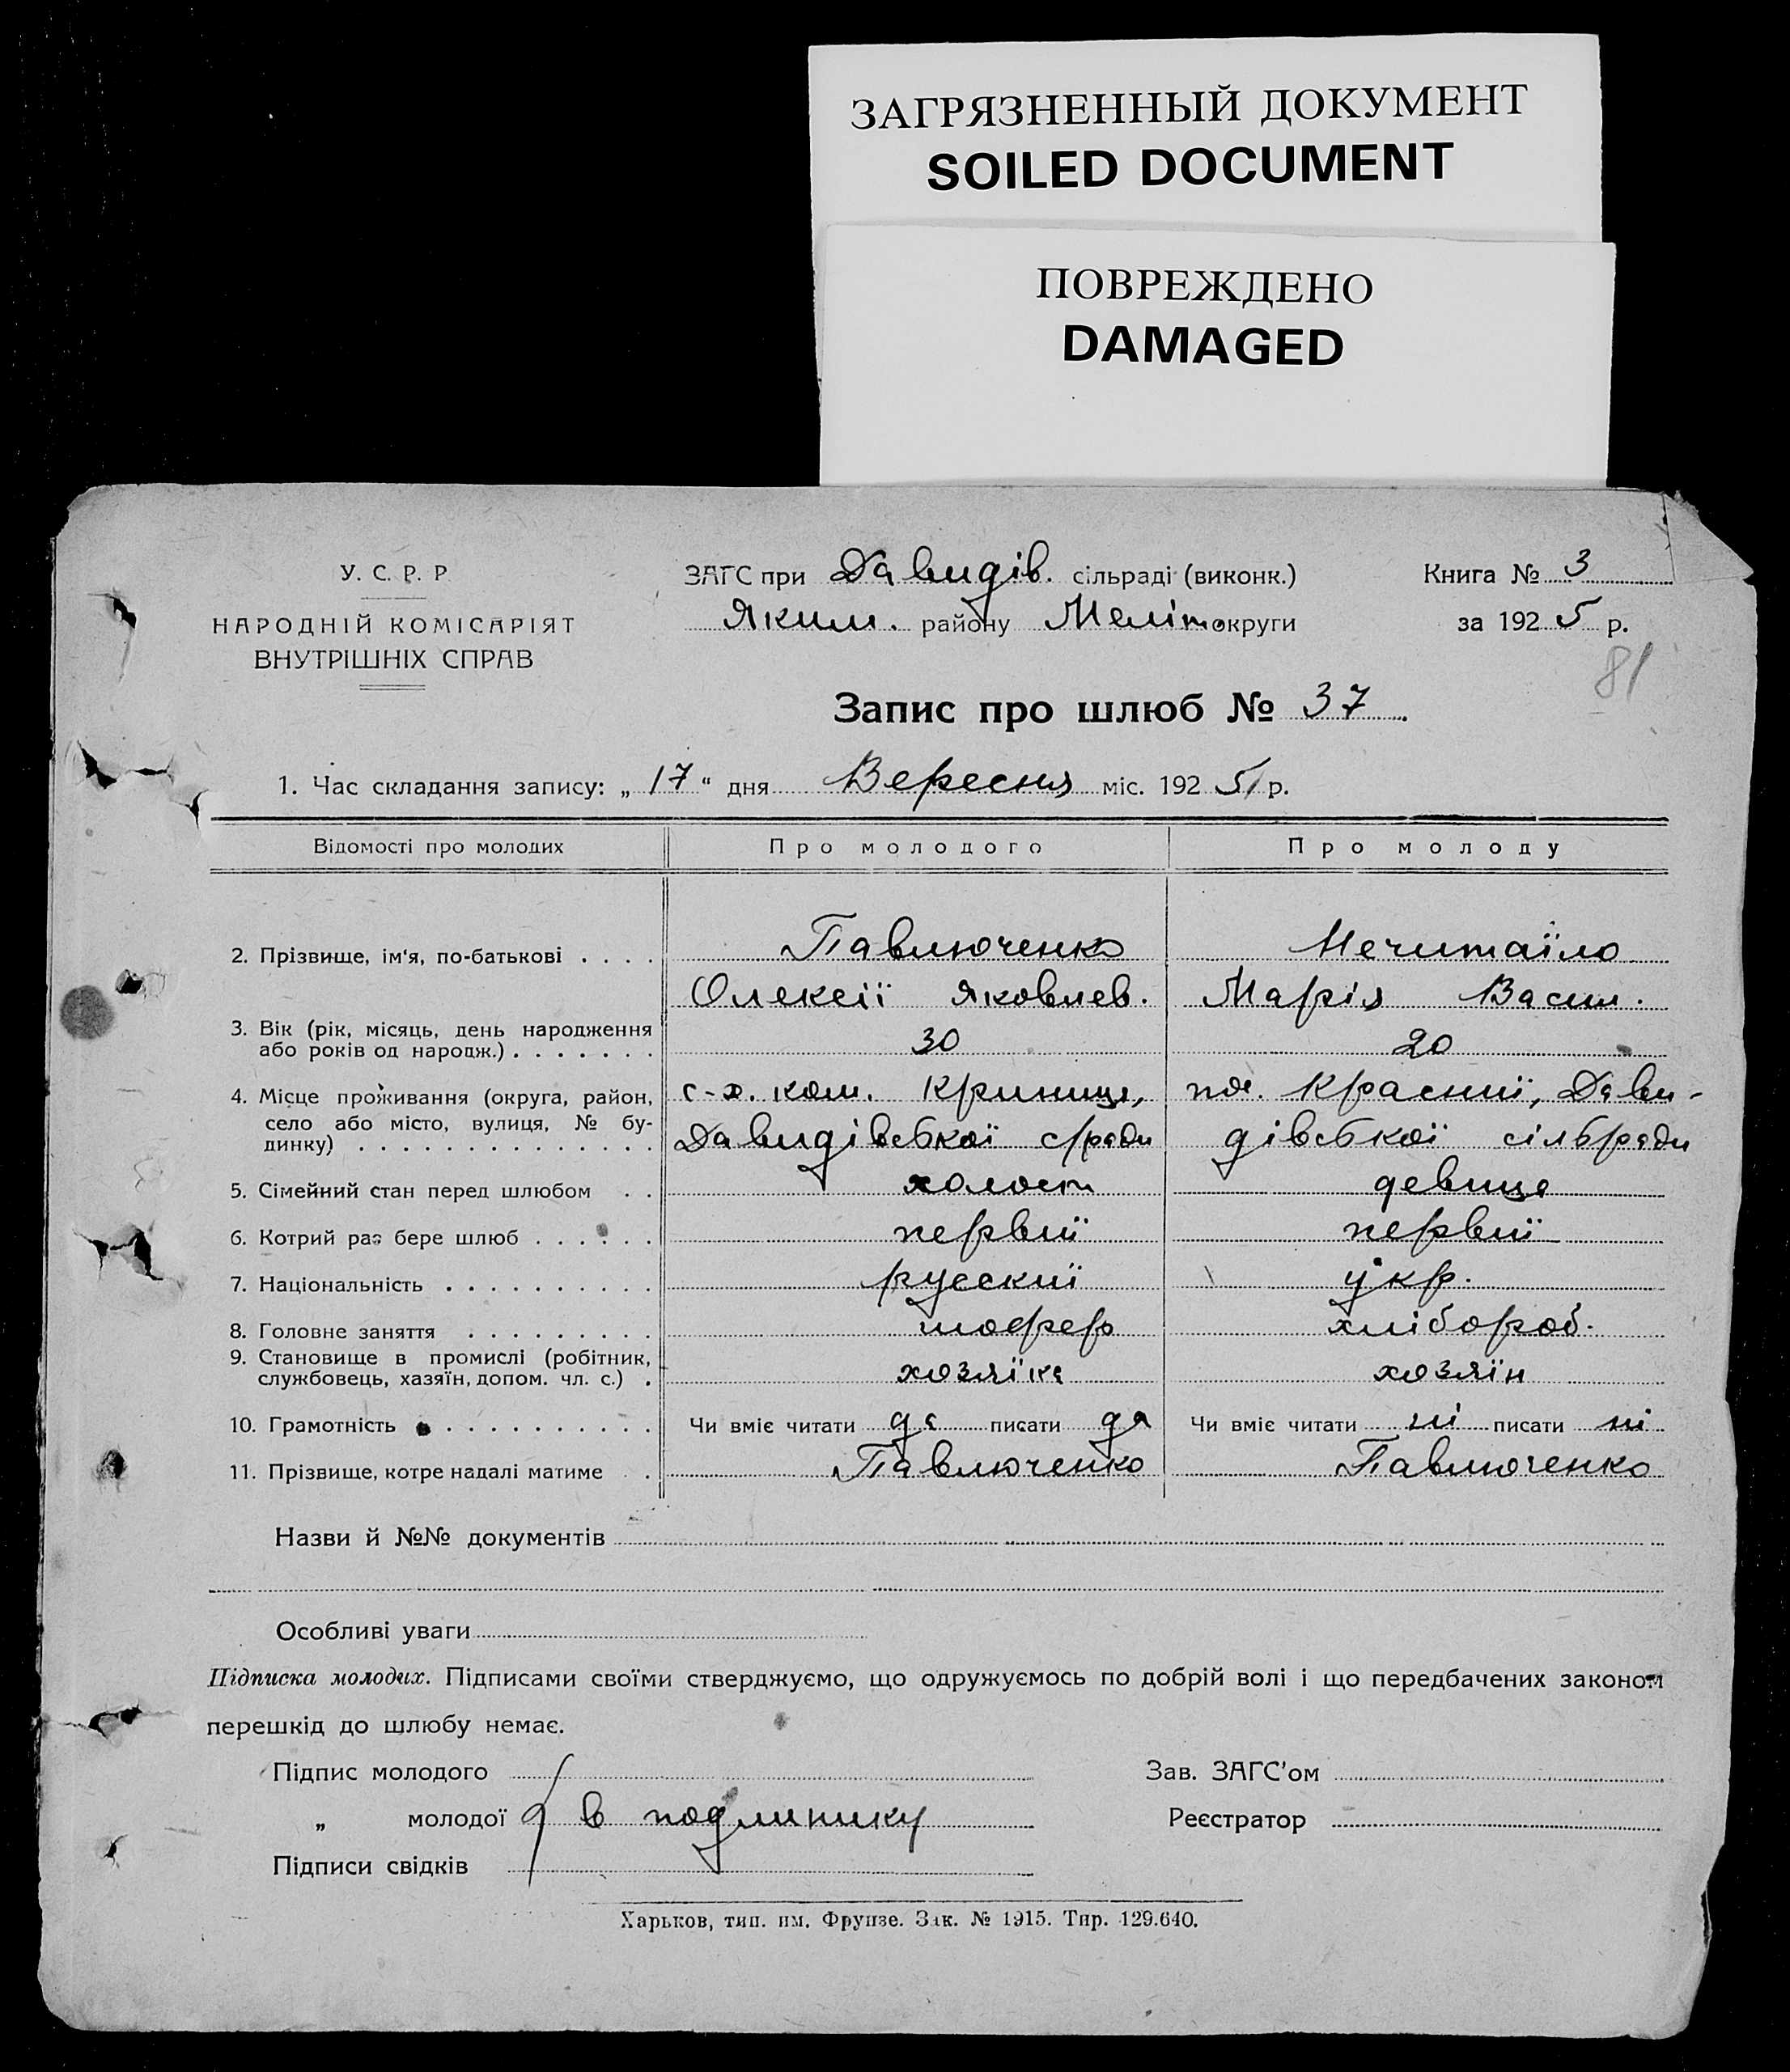 ЗАГРЯЗНЕННЫЙ ДОКУМЕНТ
SOILED DOCUMENT
ПОВРЕЖДЕНО
DAMAGED
У. С. Р. Р
НАРОДНІЙ КОМІСАРІЯТ
ВНУТРІШНІХ СПРАВ
ЗАГС при Давидів. сільраді (виконк.)
Яким. району Меліт. округи
Книга № 3
за 1925 р.
81
Запис про шлюб № 37
1. Час складання запису: „17“ дня Вересня міс. 1925 р.
Відомості про молодих Про молодого Про молоду
2. Прізвище, ім'я, по-батькові . . . . Павлюченко Нечитаїло
Олексії Яковлев. Марія Васил.
3. Вік (рік, місяць, день народження
або років од народж.) . . . . . . . 30 20
4. Місце проживання (округа, район, с-х. ком. Криниця, пос. Красниї, Дави-
село або місто, вулиця, № бу-
динку) . . . . . . . . . . . . . . Давидівської с/ради дівської сільради
5. Сімейний стан перед шлюбом . . холост девица
6. Котрий раз бере шлюб . . . . . . первиї первиї
7. Національність . . . . . . . . . . русскиї укр.
8. Головне заняття . . . . . . . . . шофер хлібороб.
9. Становище в промислі (робітник,
службовець, хазяїн, допом. чл. с.) . хозяїка хозяїн
10. Грамотність . . . . . . . . . . . Чи вміє читати да писати да Чи вміє читати ні писати ні
11. Прізвище, котре надалі матиме . . Павлюченко Павлюченко
Назви й №№ документів
Особливі уваги
Підписка молодих. Підписами своїми стверджуємо, що одружуємось по добрій волі і що передбачених законом
перешкід до шлюбу немає.
Підпис молодого Зав. ЗАГС'ом
„ молодої в подлинику Реєстратор
Підписи свідків
Харьков, тип. им. Фрунзе. Зак. № 1915. Тир. 129.640.